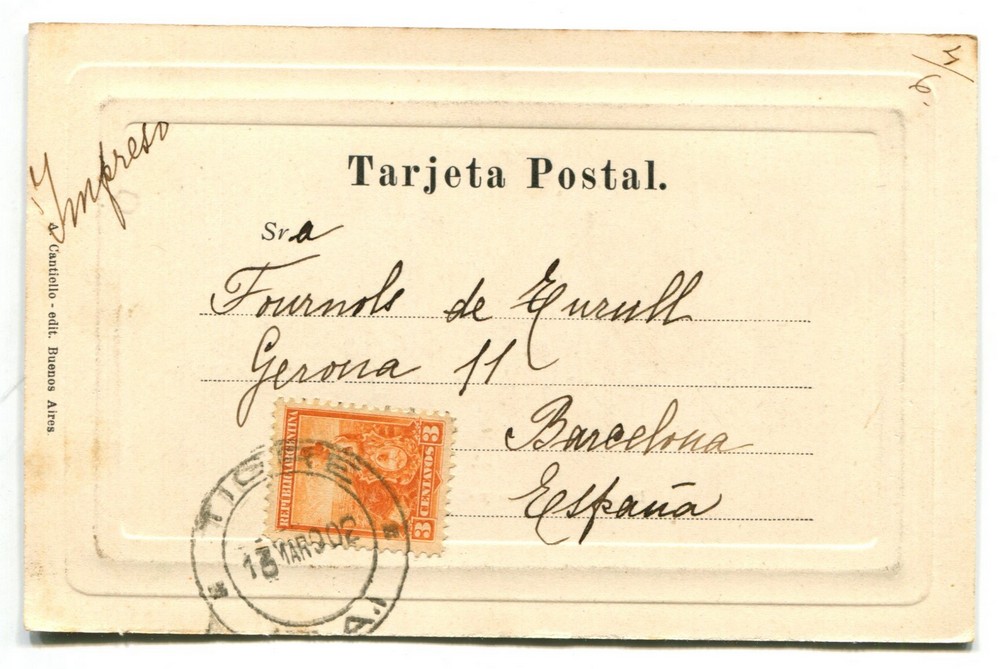 Impreso
Tarjeta Postal.
Sra
Fournols de Turull
Gerona 11
Barcelona
España
A. Cantiello - edit. Buenos Aires.
REPUBLICA ARGENTINA
3 CENTAVOS 3
TIGRE
MAR 902